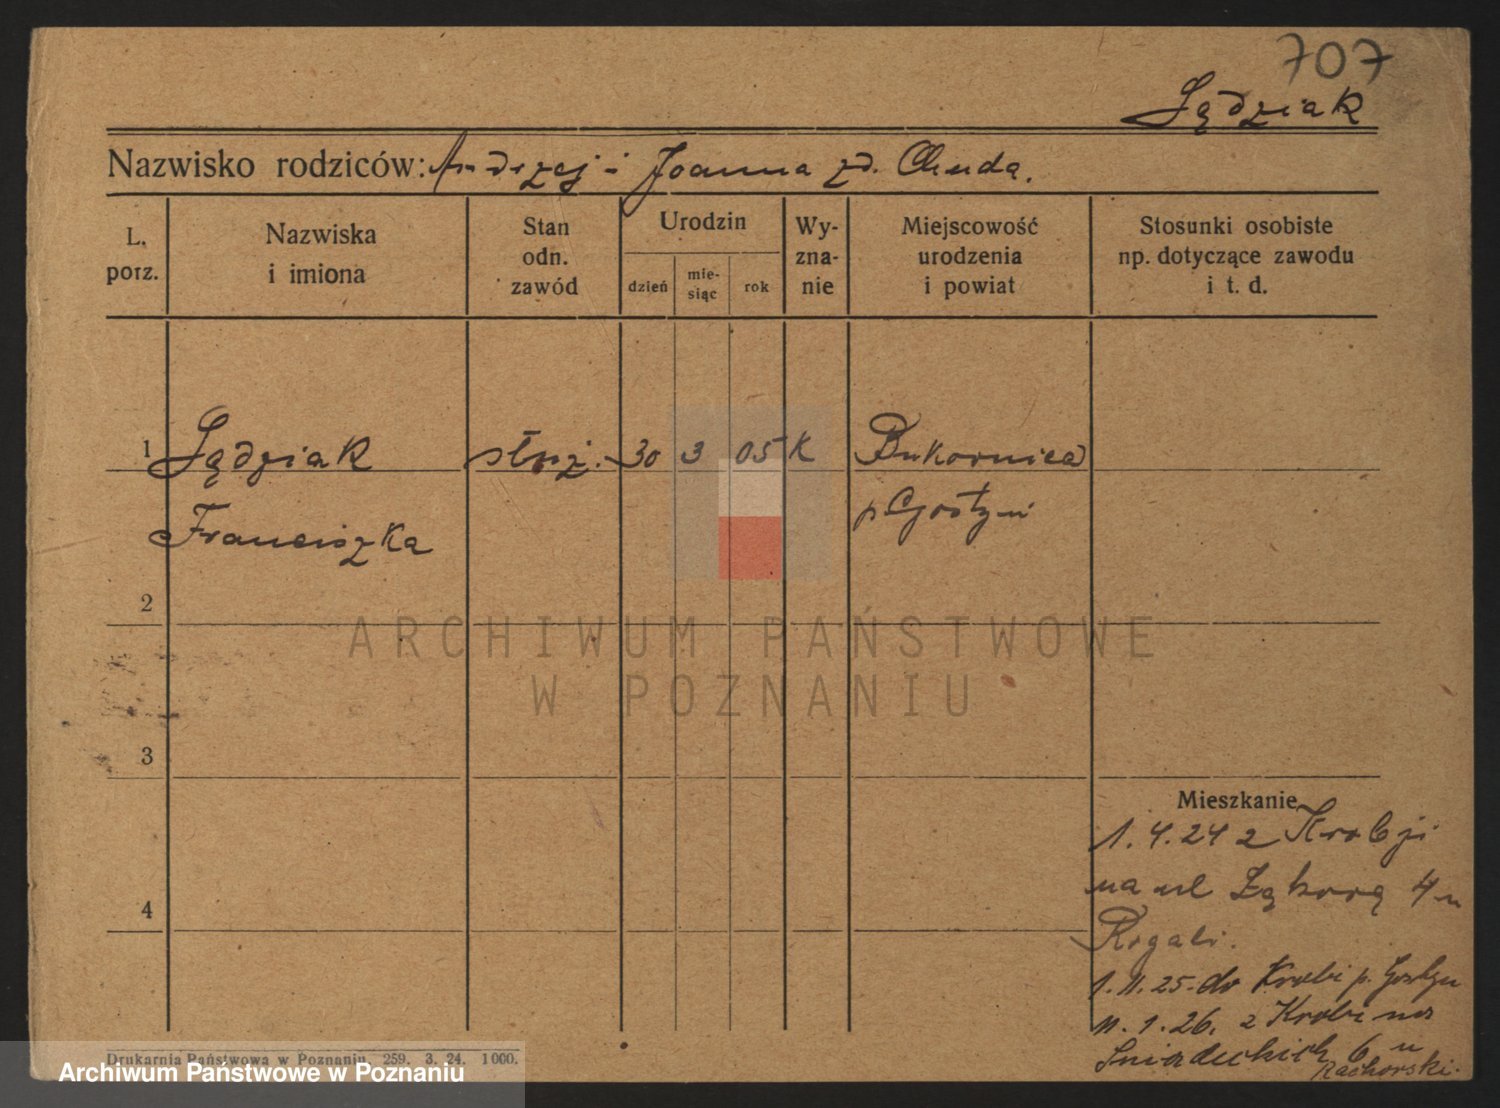 707
Sądziak
Nazwisko rodziców: Andrzej i Joanna zd. Chuda.
L. porz.
Nazwiska i imiona
Stan odn. zawód
Urodzin
dzień
mie-siąc
rok
Wy-zna-nie
Miejscowość urodzenia i powiat
Stosunki osobiste np. dotyczące zawodu i t. d.
1 Sądziak służ. 30 3 05 K Bukownica
Franciszka p Gostyń
2
ARCHIWUM PAŃSTWOWE
W POZNANIU
3
Mieszkanie
1.4.24 z Krobji
na ul Łąkową 4 u
4
Rogali.
1.11.25. do Krobi p. Gostyń
11.1.26. z Krobi na
Śniadeckich 6 u
Drukarnia Państwowa w Poznaniu 259. 3. 24. 1000.
Archiwum Państwowe w Poznaniu